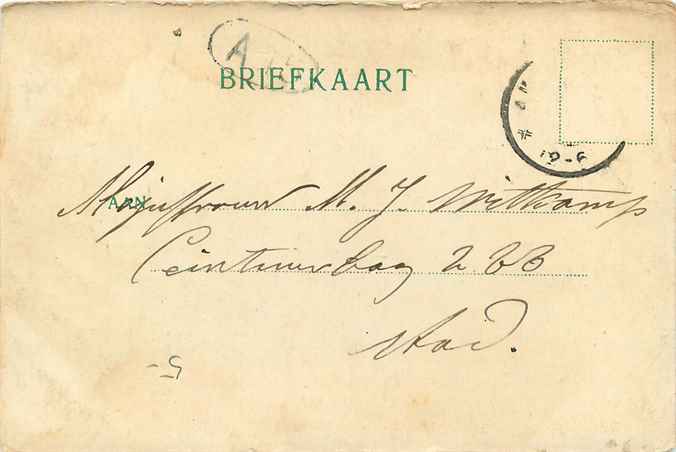 BRIEFKAART
AAN
Mejuffrouw M. J. Wittkamp
Ceintuurbaan
Stad.